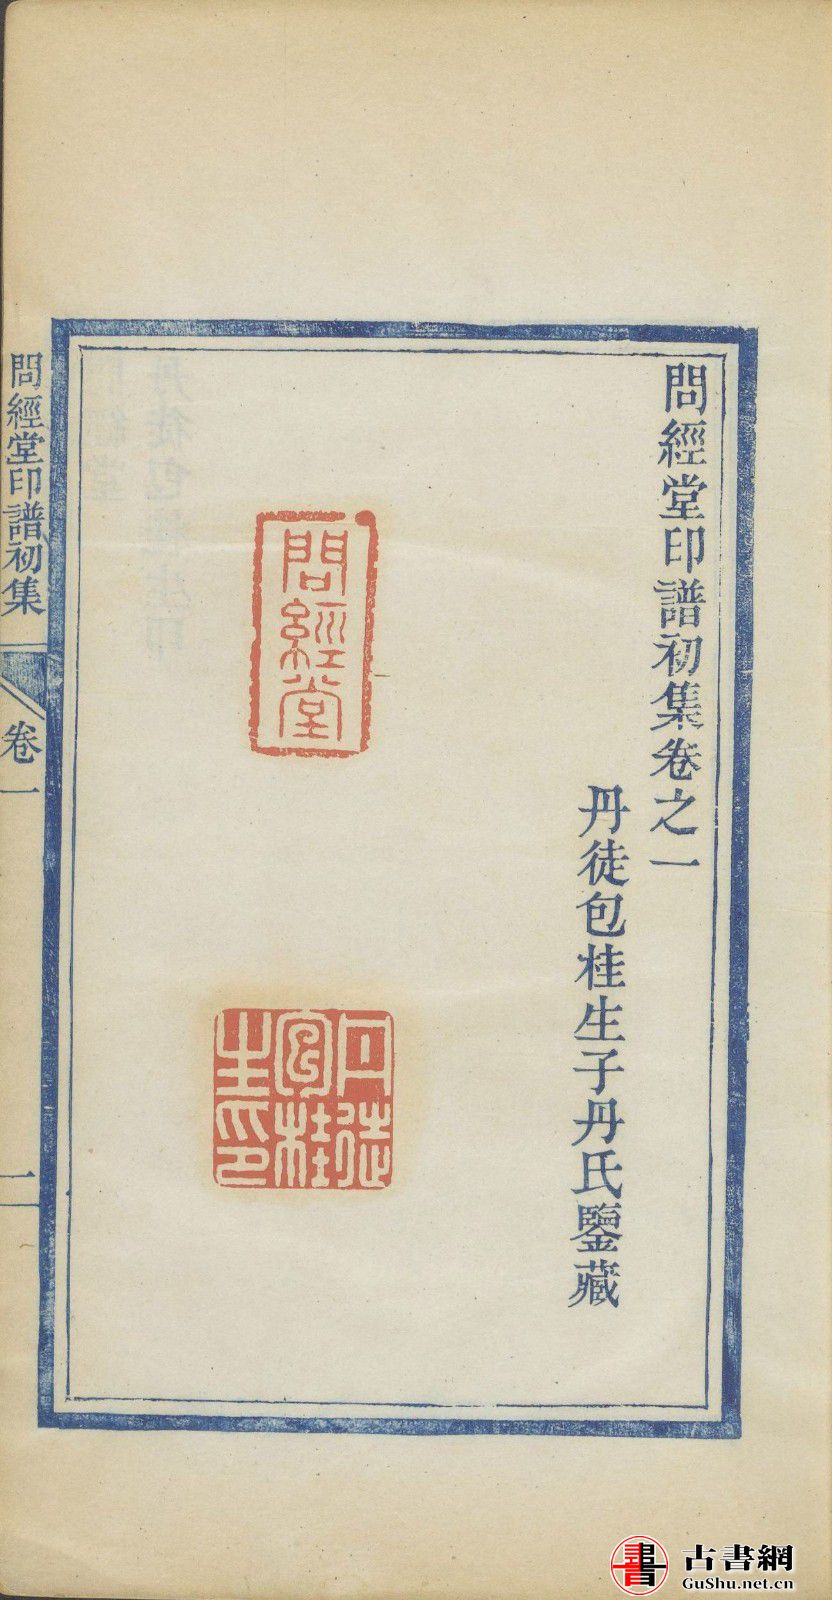 問經堂印譜初集卷之一
丹徒包桂生子丹氏鑒藏
問經堂
丹徒包桂生印
問經堂印譜初集
卷一
一
古書網
GuShu.net.cn